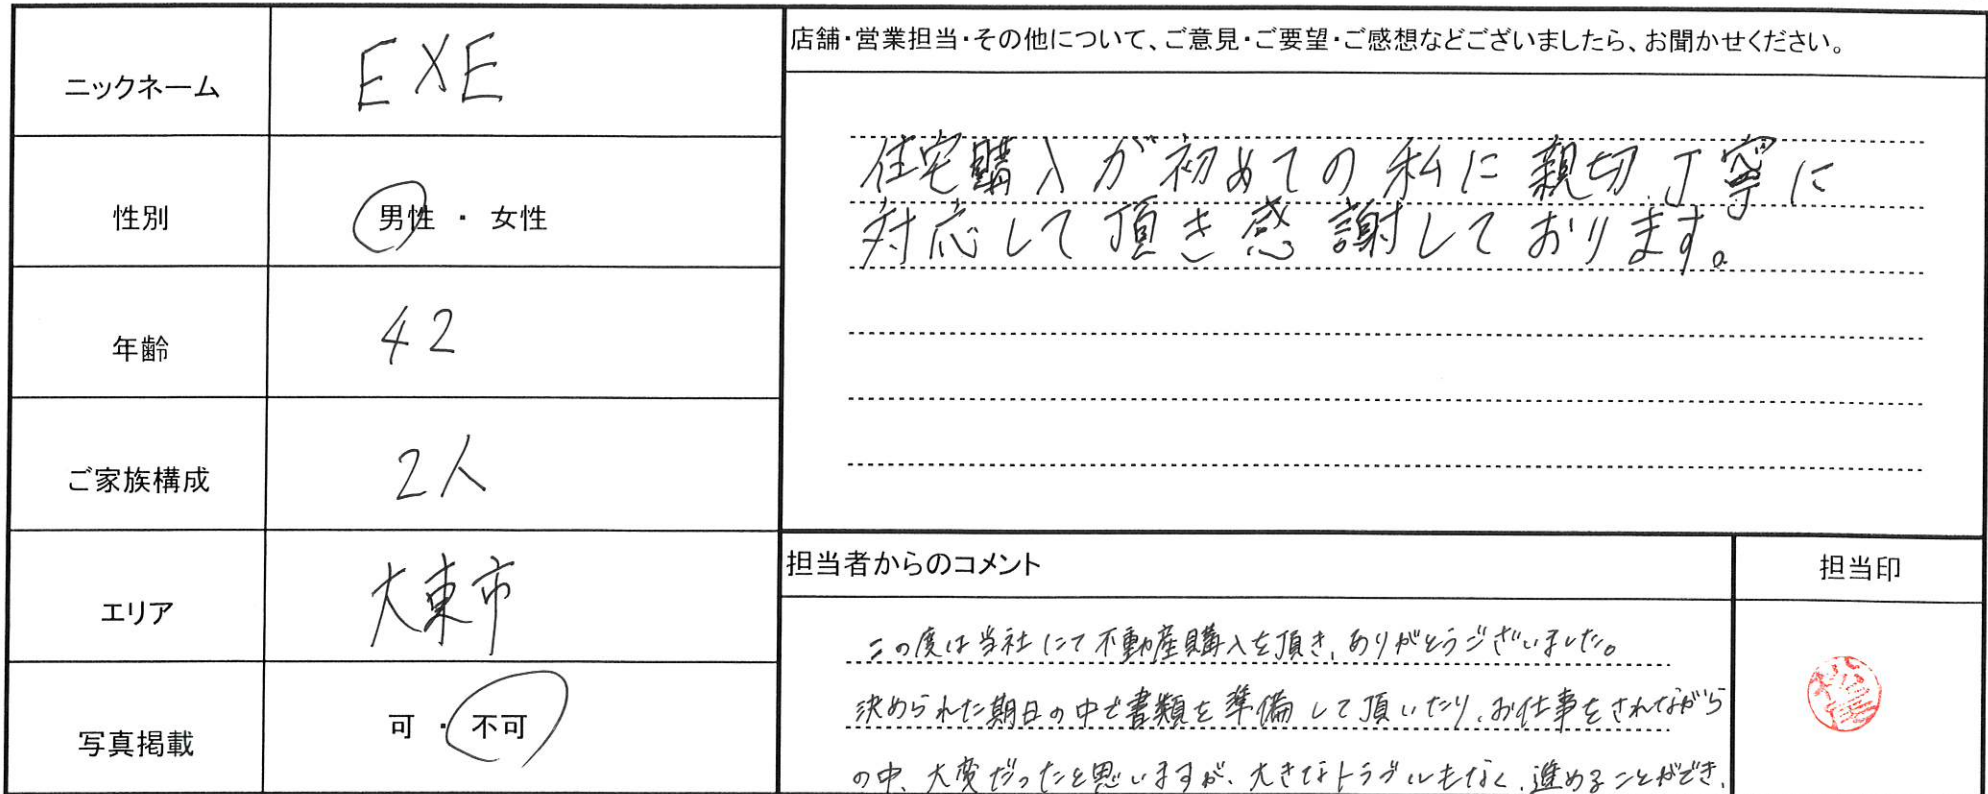 ニックネーム
EXE
性別
男性 ・ 女性
年齢
42
ご家族構成
2人
エリア
大東市
写真掲載
可 ・ 不可
店舗・営業担当・その他について、ご意見・ご要望・ご感想などございましたら、お聞かせください。
住宅購入が初めての私に親切、丁寧に
対応して頂き感謝しております。
担当者からのコメント
この度は当社にて不動産購入を頂き、ありがとうございました。
決められた期日の中で書類を準備して頂いたり、お仕事をされながら
の中、大変だったと思いますが、大きなトラブルもなく、進めることができ、
担当印